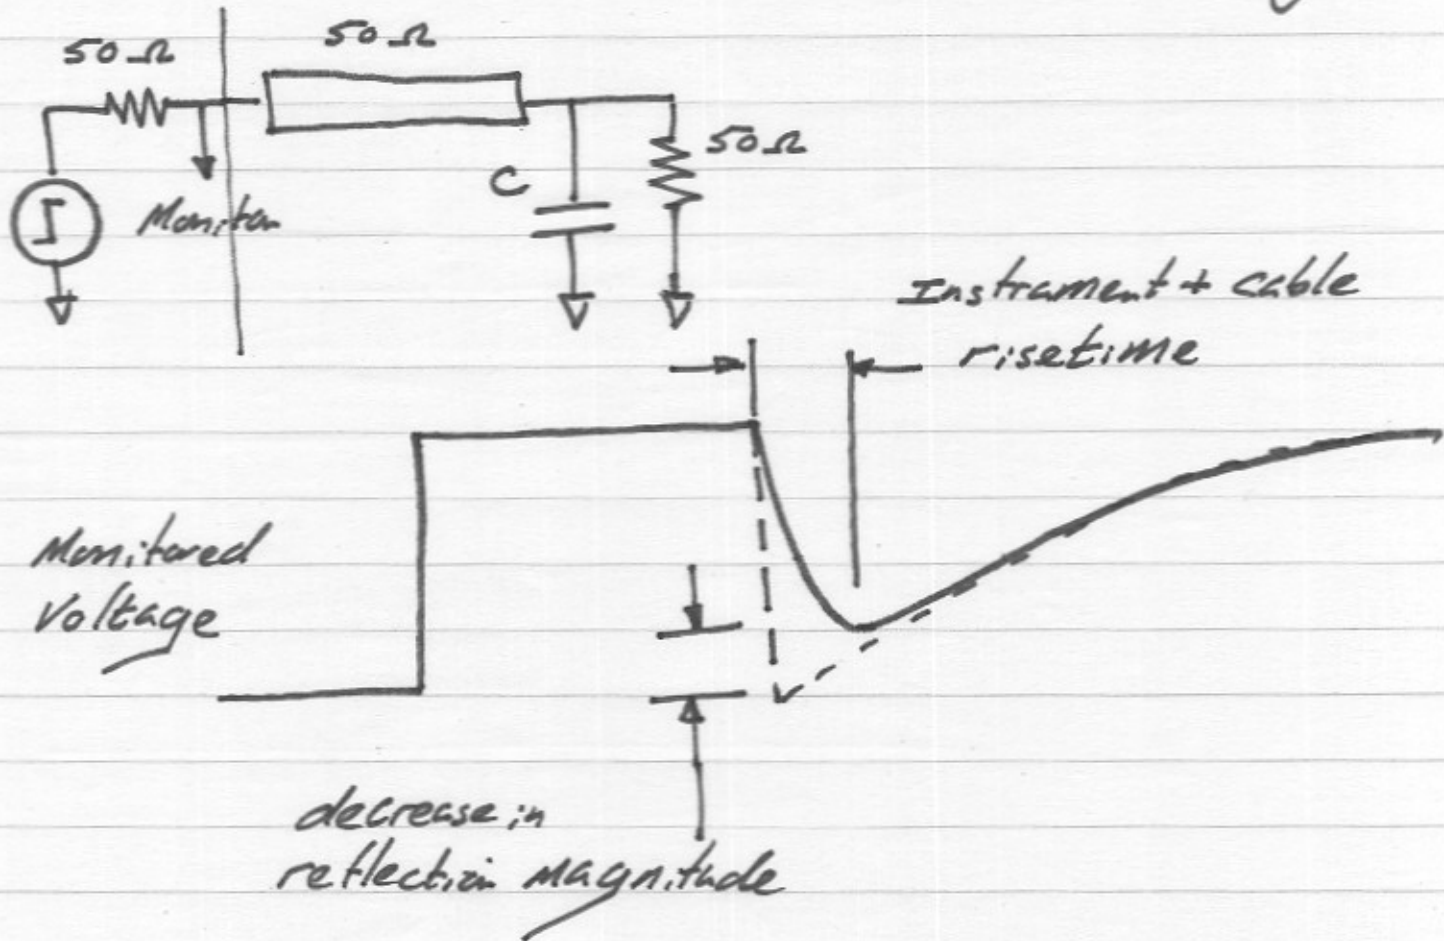 50Ω
50Ω
50Ω
C
Monitor
Instrament + cable
risetime
Monitored
Voltage
decrease in
reflection magnitude